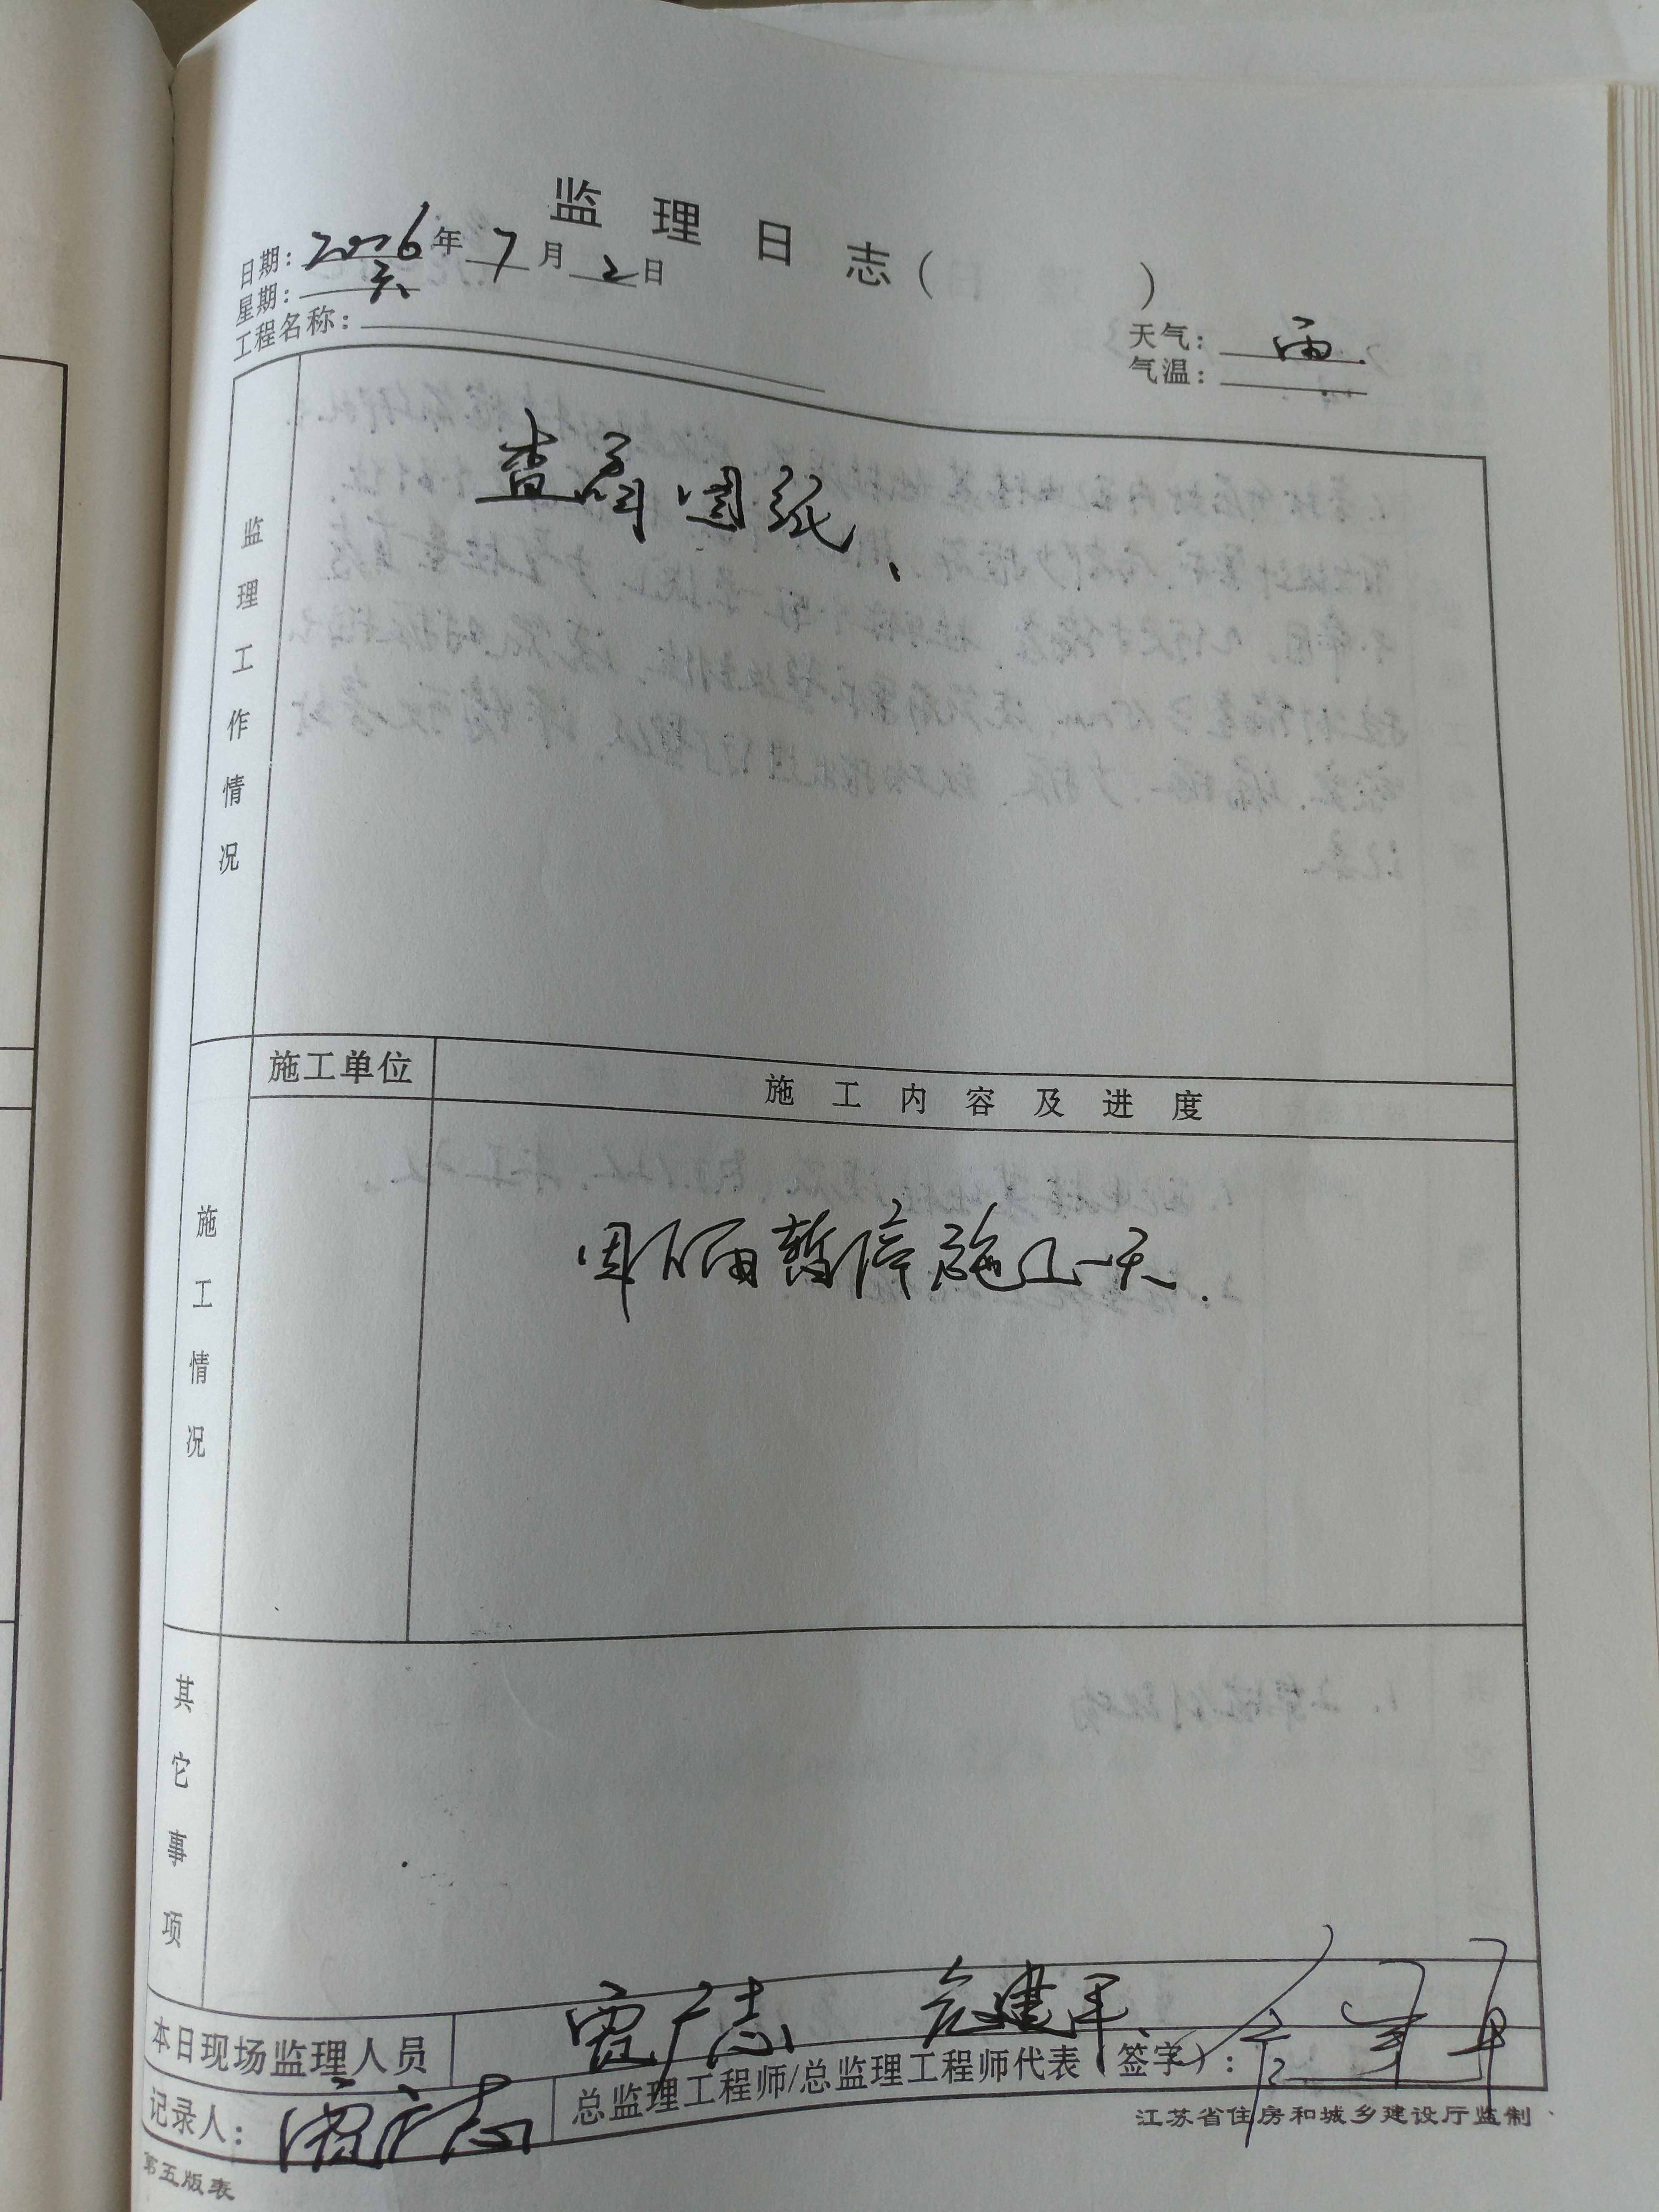 监理日志（ ）
日期：2026年7月2日
星期：
工程名称：
天气：雨
气温：
监理工作情况
查看图纸、
施工单位
施工内容及进度
施工情况
因下雨暂停施工一天.
其它事项
本日现场监理人员 广志 建军
记录人： 广志
总监理工程师/总监理工程师代表（签字）：
江苏省住房和城乡建设厅监制
第五版表